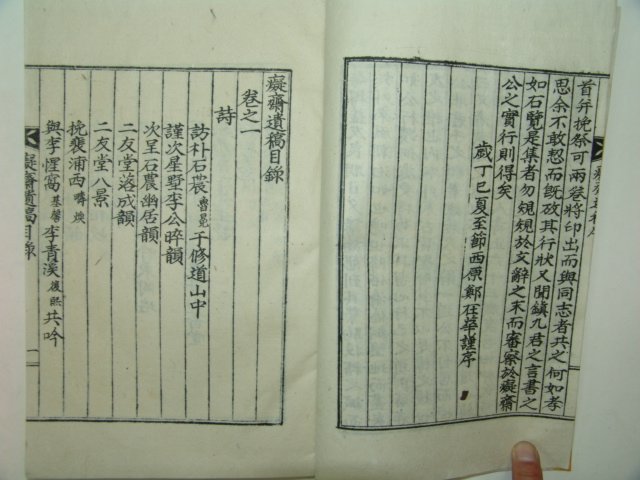 首弁挽祭可兩卷將印出而與同志者共之何如孝
思余不敢恝而旣攷其行狀又聞鎭九君之言書之
如石覽是集者勿規規於文辭之末而審察於癡齋
公之實行則得矣
歲丁巳夏至節西原鄭在華謹序
癡齋遺稿目錄
卷之一
詩
訪朴石農魯冕于修道山中
謹次星墅李公晬韻
次呈石農幽居韻
二友堂落成韻
二友堂八景
挽裵浦西疇煥
與李惺窩基馨李青溪後熙共吟
癡齋遺稿目錄
一